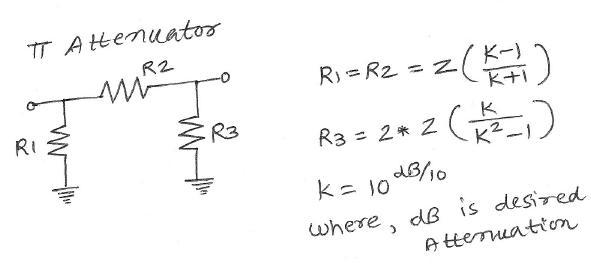 π Attenuator
R2
R1
R3
R1 = R2 = Z (K-1/K+1)
R3 = 2 * Z (K/K²-1)
K = 10^dB/10
where, dB is desired
Attenuation